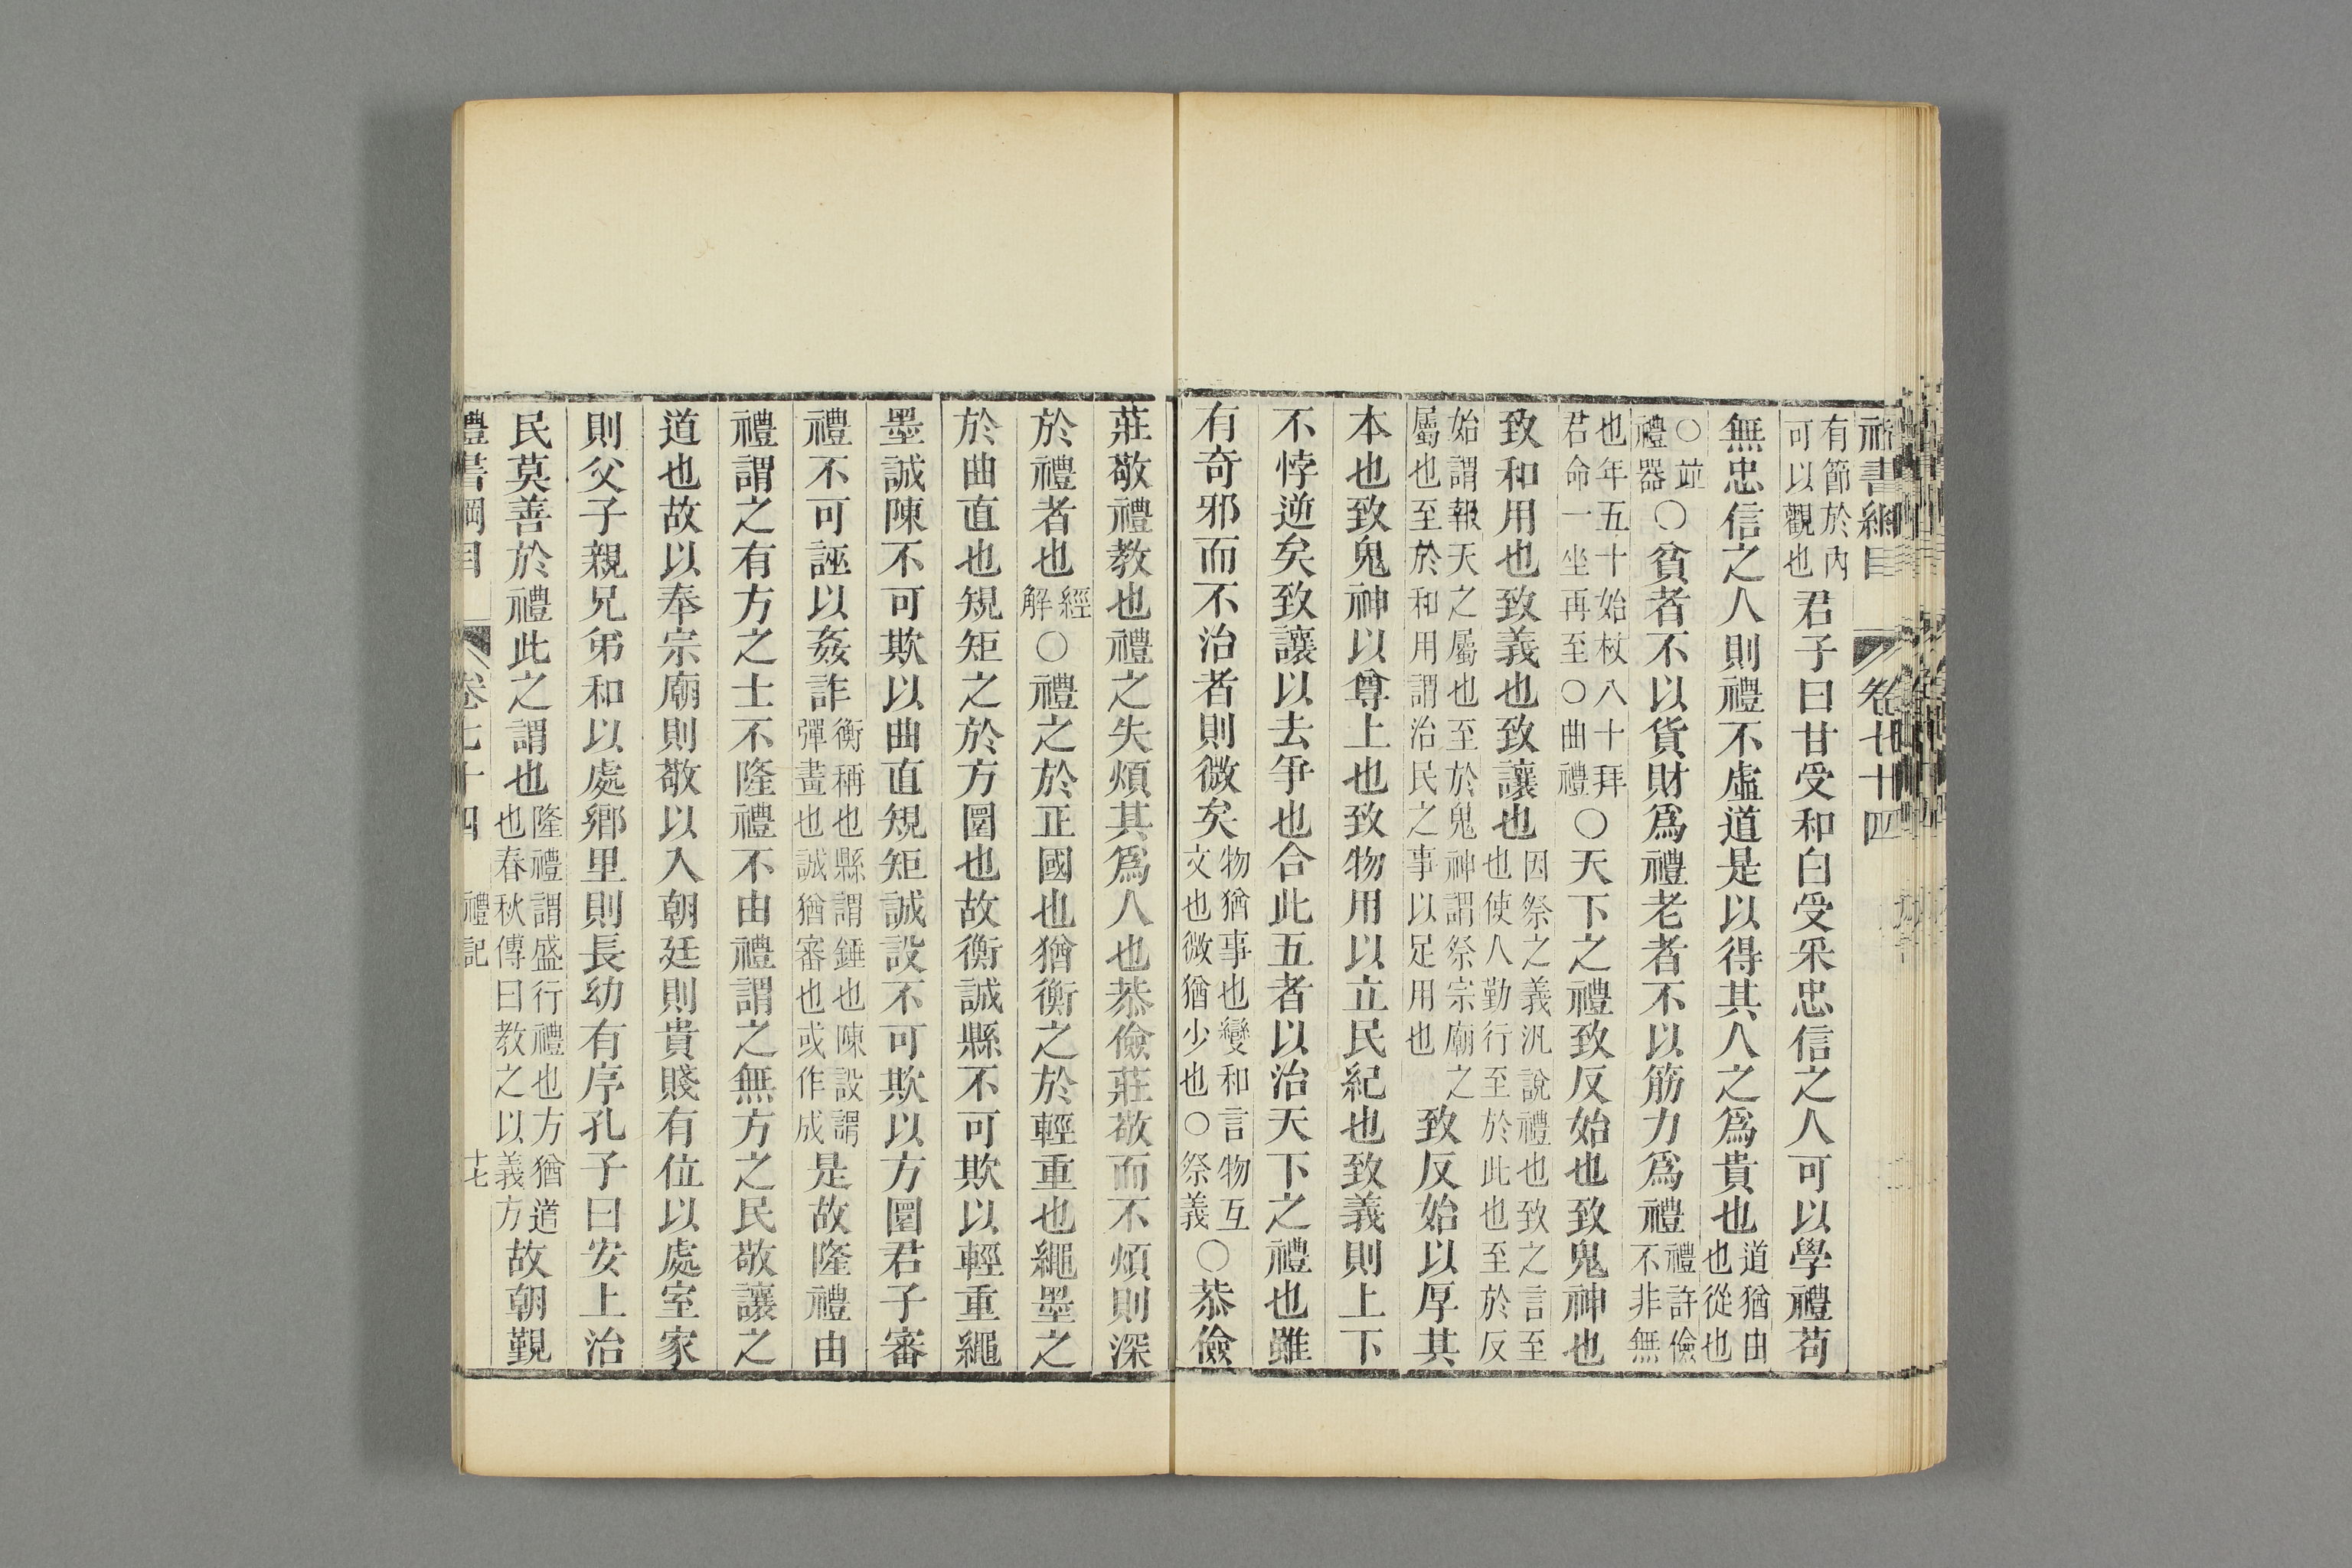 禮書綱目 卷七十四
有節於內可以觀也君子曰甘受和白受采忠信之人可以學禮苟
無忠信之人則禮不虛道是以得其人之爲貴也道猶由也從也
○並禮器○貧者不以貨財爲禮老者不以筋力爲禮禮許儉不非無
也年五十始杖八十拜君命一坐再至○曲禮○天下之禮致反始也致鬼神也
致和用也致義也致讓也因祭之義汎說禮也致之言至也使人勤行至於此也至於反
始謂報天之屬也至於鬼神謂祭宗廟之屬也至於和用謂治民之事以足用也致反始以厚其
本也致鬼神以尊上也致物用以立民紀也致義則上下
不悖逆矣致讓以去爭也合此五者以治天下之禮也雖
有奇邪而不治者則微矣物猶事也變和言物互文也微猶少也○祭義○恭儉
莊敬禮教也禮之失煩其爲人也恭儉莊敬而不煩則深
於禮者也經解○禮之於正國也猶衡之於輕重也繩墨之
於曲直也規矩之於方圜也故衡誠縣不可欺以輕重繩
墨誠陳不可欺以曲直規矩誠設不可欺以方圜君子審
禮不可誣以姦詐衡稱也縣謂錘也陳設謂彈畫也誠猶審也或作成是故隆禮由
禮謂之有方之士不隆禮不由禮謂之無方之民敬讓之
道也故以奉宗廟則敬以入朝廷則貴賤有位以處室家
則父子親兄弟和以處鄉里則長幼有序孔子曰安上治
民莫善於禮此之謂也隆禮謂盛行禮也方猶道也春秋傳曰教之以義方故朝覲
禮書綱目 卷七十四 禮記 十七